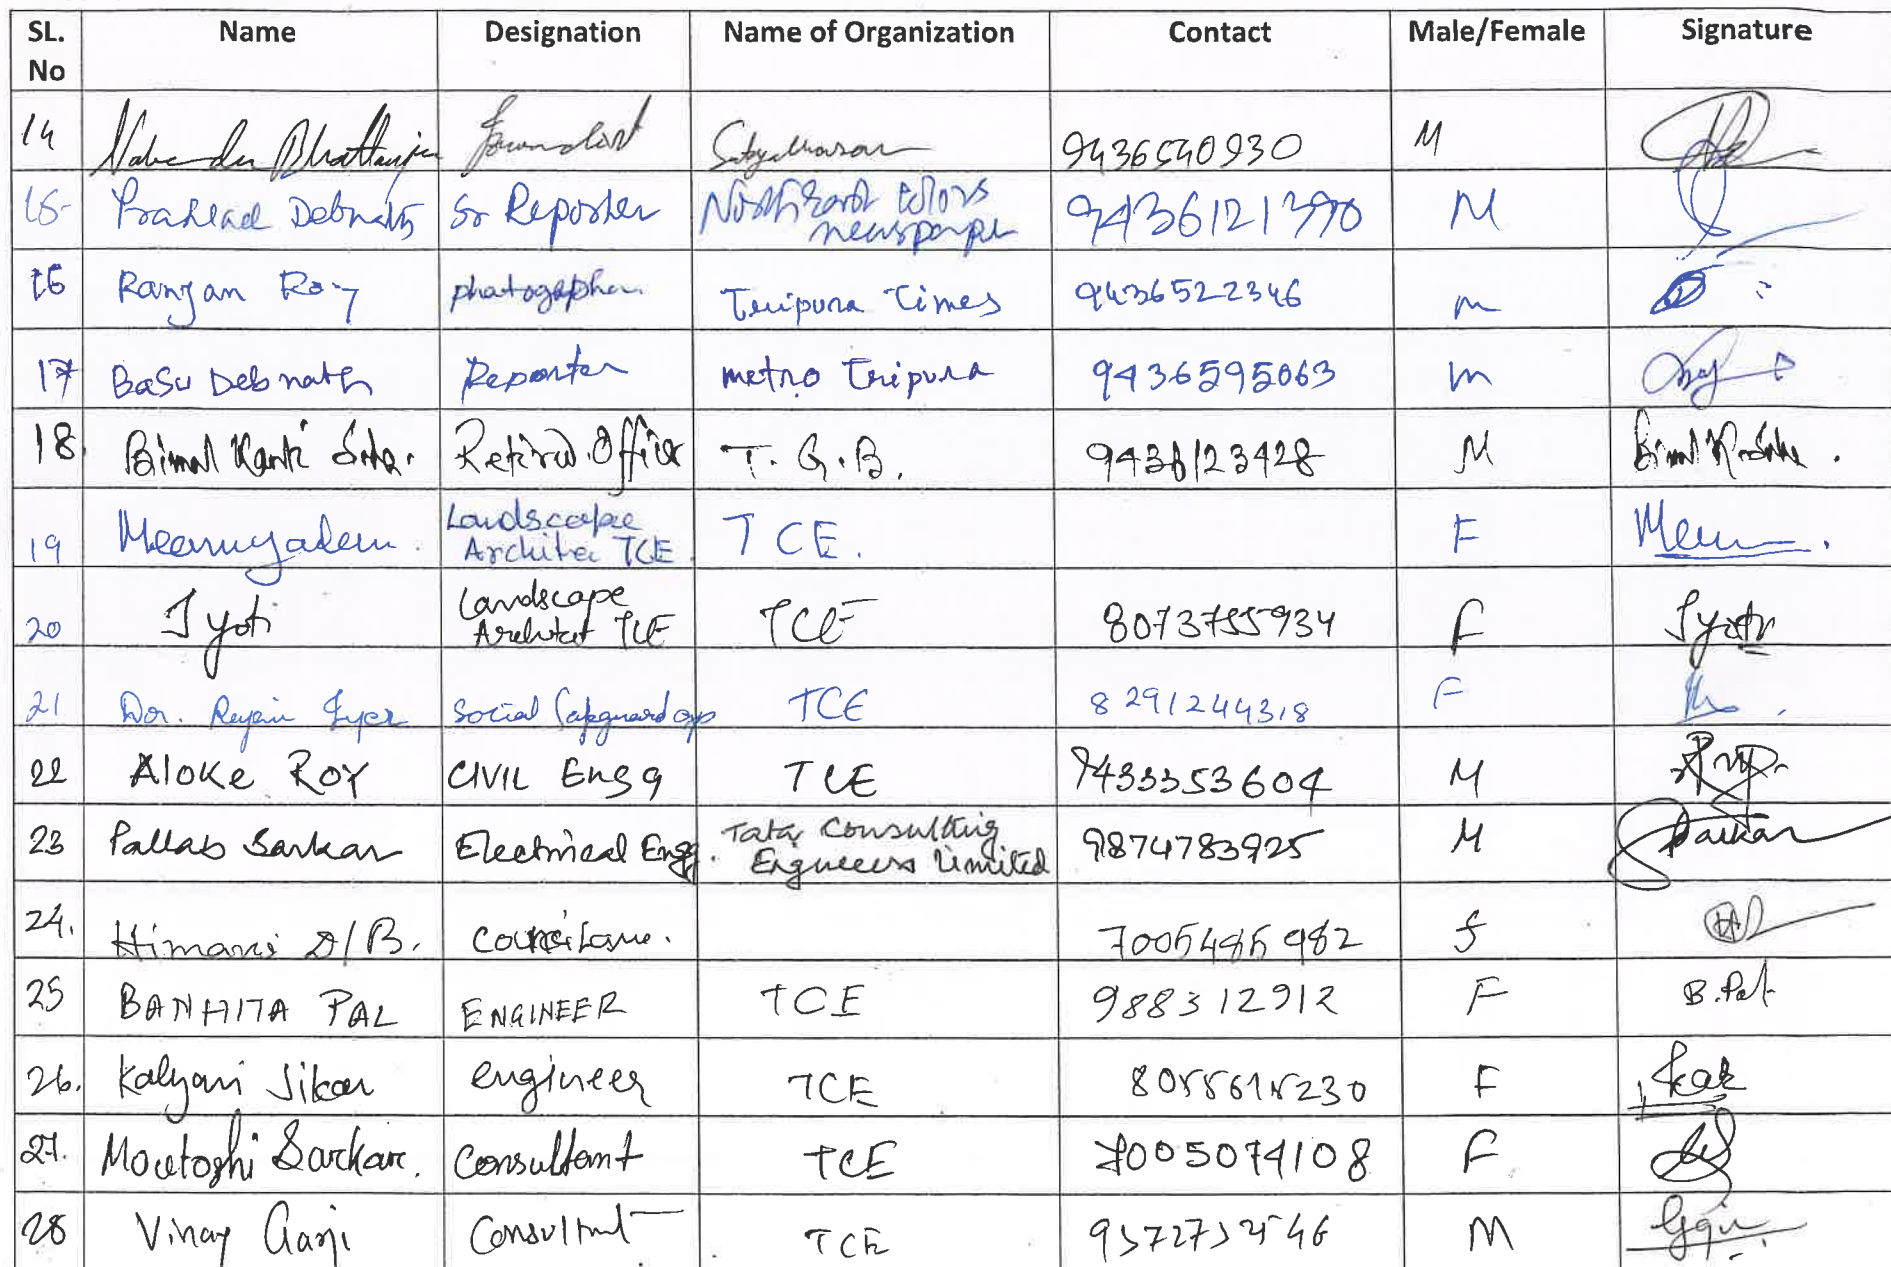 SL. No Name Designation Name of Organization Contact Male/Female Signature
14 Bhattarjee Journalist 9436540930 M
15- Prahlad Debnath Sr Reporter North East Colors newspaper 9436121390 M
16 Ranjan Roy photogapher Tripura Times 9436522346 m
17 Basu Debnath Reporter metro Tripura 9436595063 m
18. Bimal Kanti Saha. Retired Officer T.G.B. 9436123428 M
19 Landscape Architec TCE. TCE. F
20 Jyoti Landscape Architect TCE TCE 8073755934 F Jyoti
21 Dr. Iyer Social Safeguard exp TCE 8291244318 F
22 Aloke Roy CIVIL Engg TCE 9433353604 M
23 Pallab Sarkar Electrical Engg. Tata Consulting Engineers Limited 9874783925 M Sarkar
24. Himani D/B. 7005485982 f
25 BANHITA PAL ENGINEER TCE 988312912 F B.Pal
26. Kalyani Sikar engineer TCE 8055615230 F
27. Moutoshi Sarkar. Consultant TCE 7005074108 F
28 Vinay Ganji Consultant TCE M